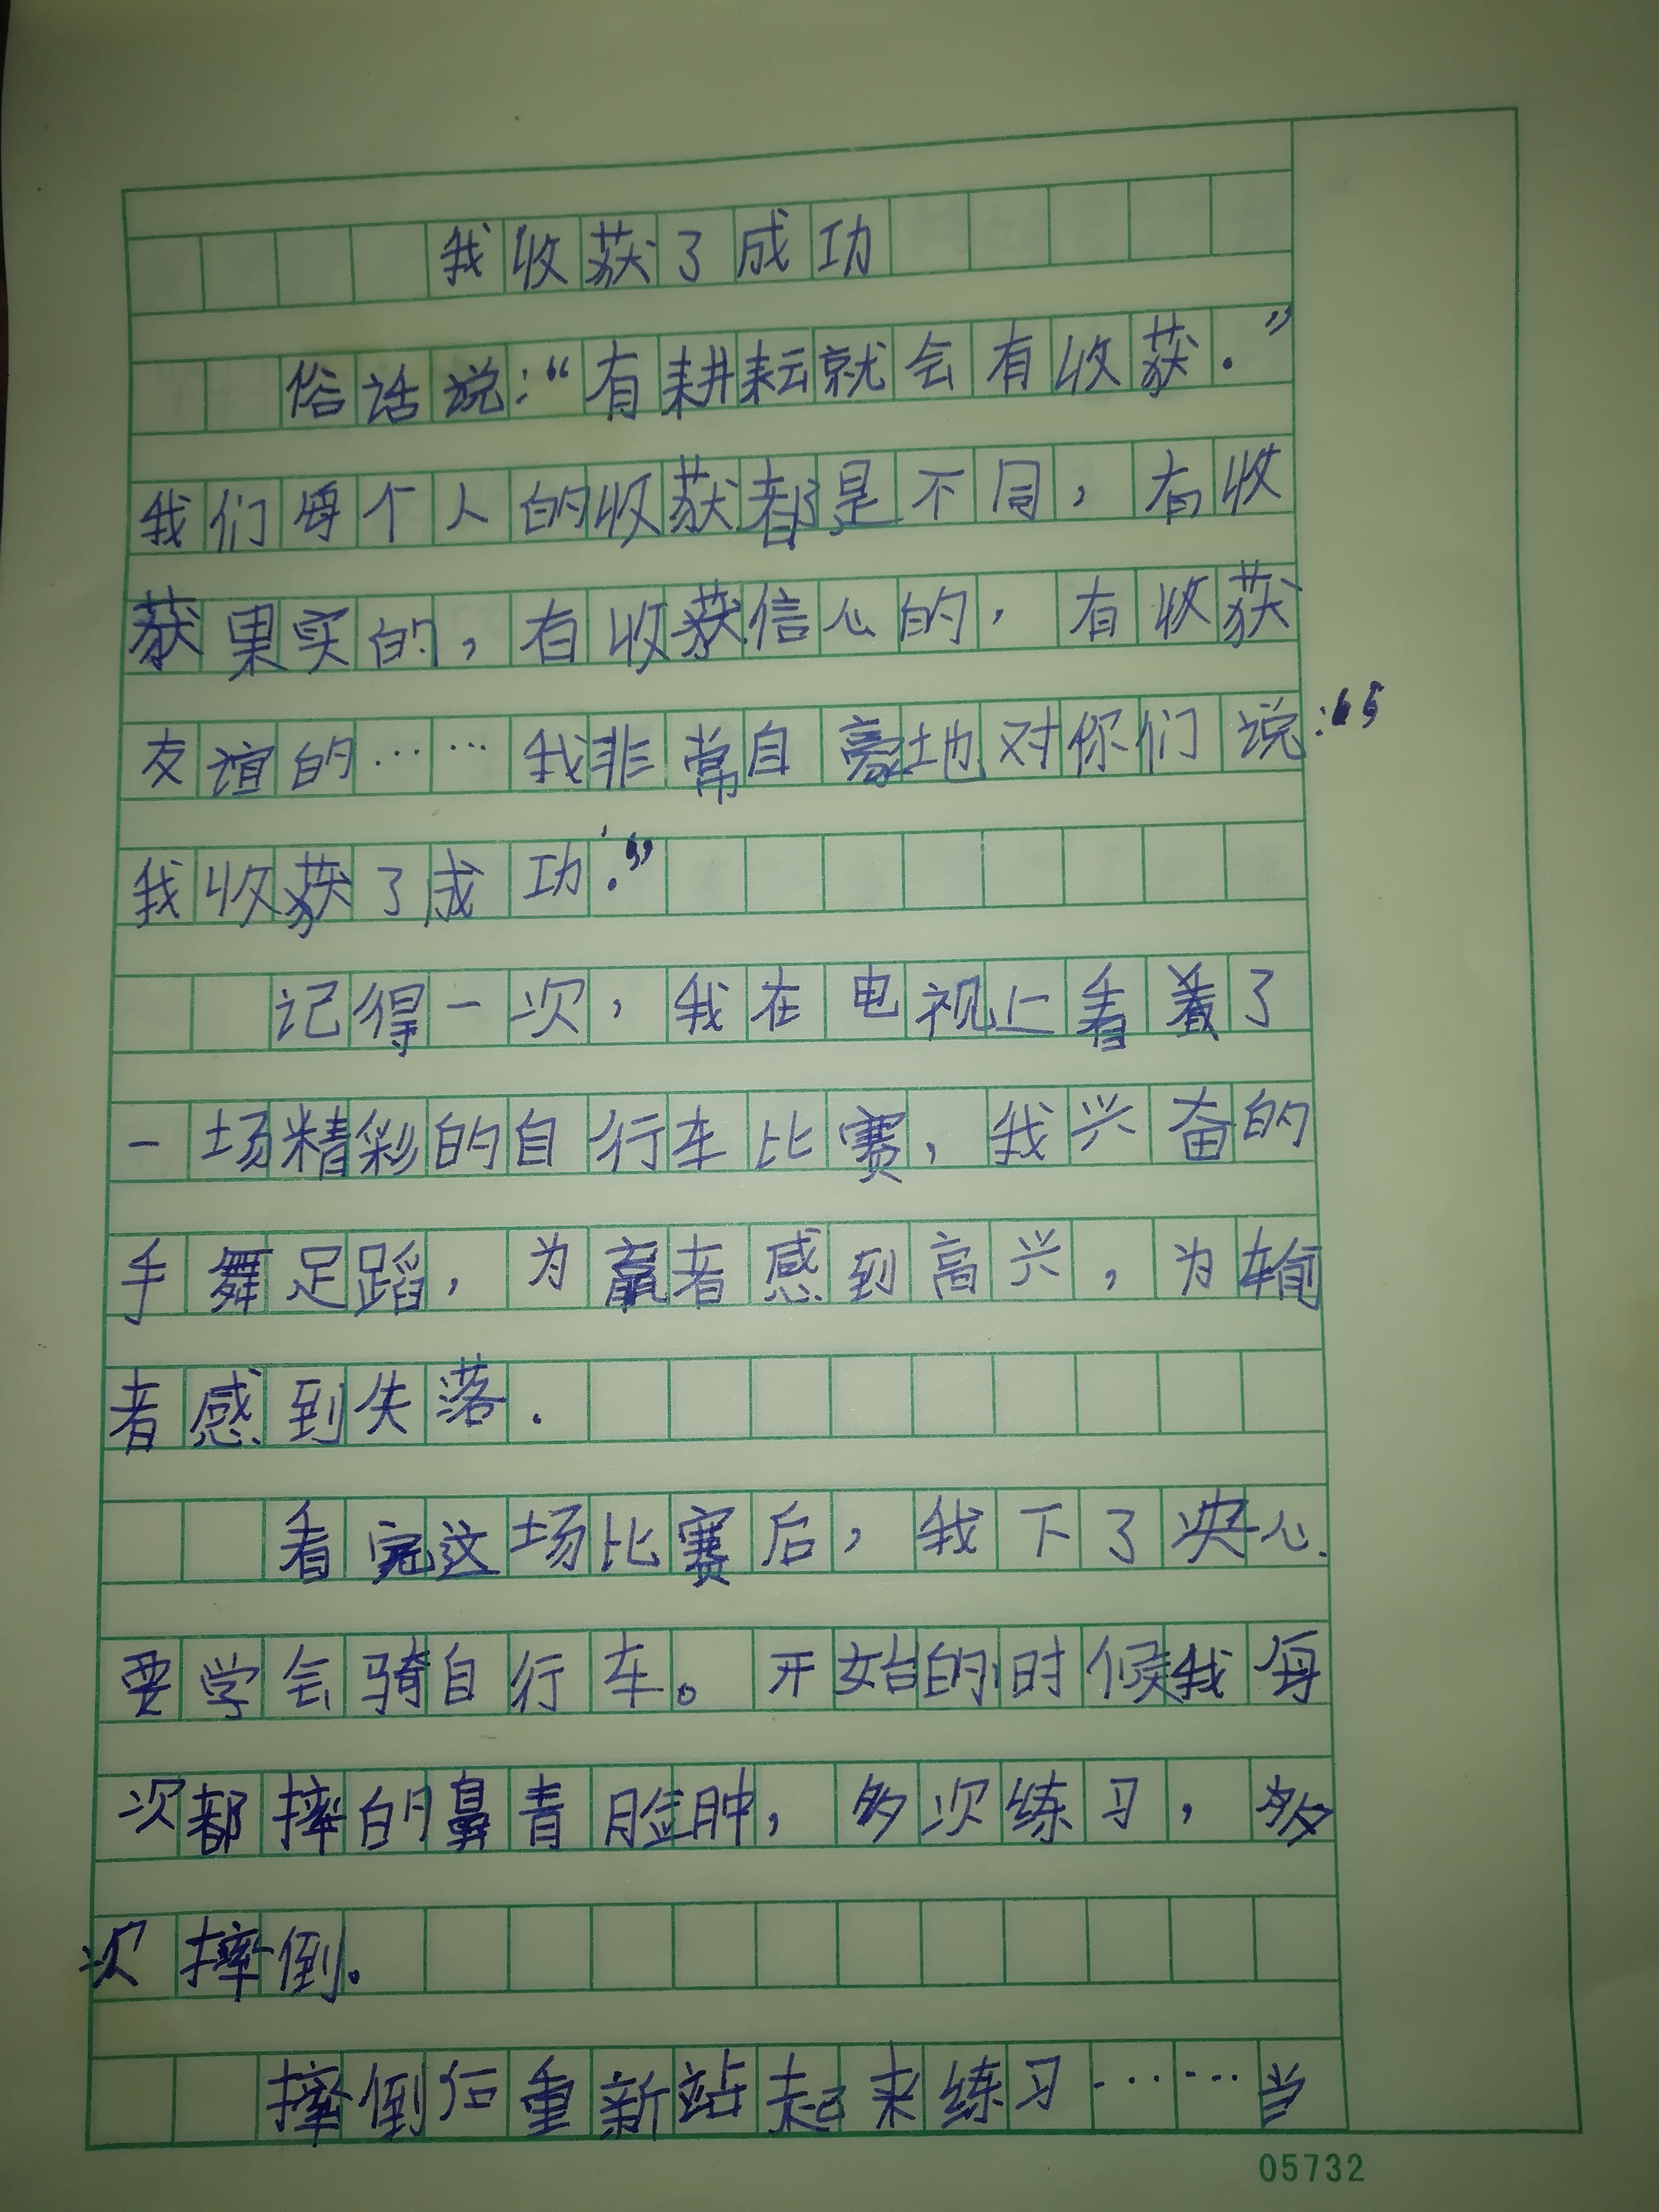 我收获了成功
俗话说:“有耕耘就会有收获.”
我们每个人的收获都是不同,有收
获果实的,有收获信心的,有收获
友谊的……我非常自豪地对你们说:“
我收获了成功.”
记得一次,我在电视上看着了
一场精彩的自行车比赛,我兴奋的
手舞足蹈,为赢者感到高兴,为输
者感到失落.
看完这场比赛后,我下了决心.
要学会骑自行车。开始的时候我每
次都摔的鼻青脸肿,多次练习,多
次摔倒。
摔倒后重新站起来练习……当
05732